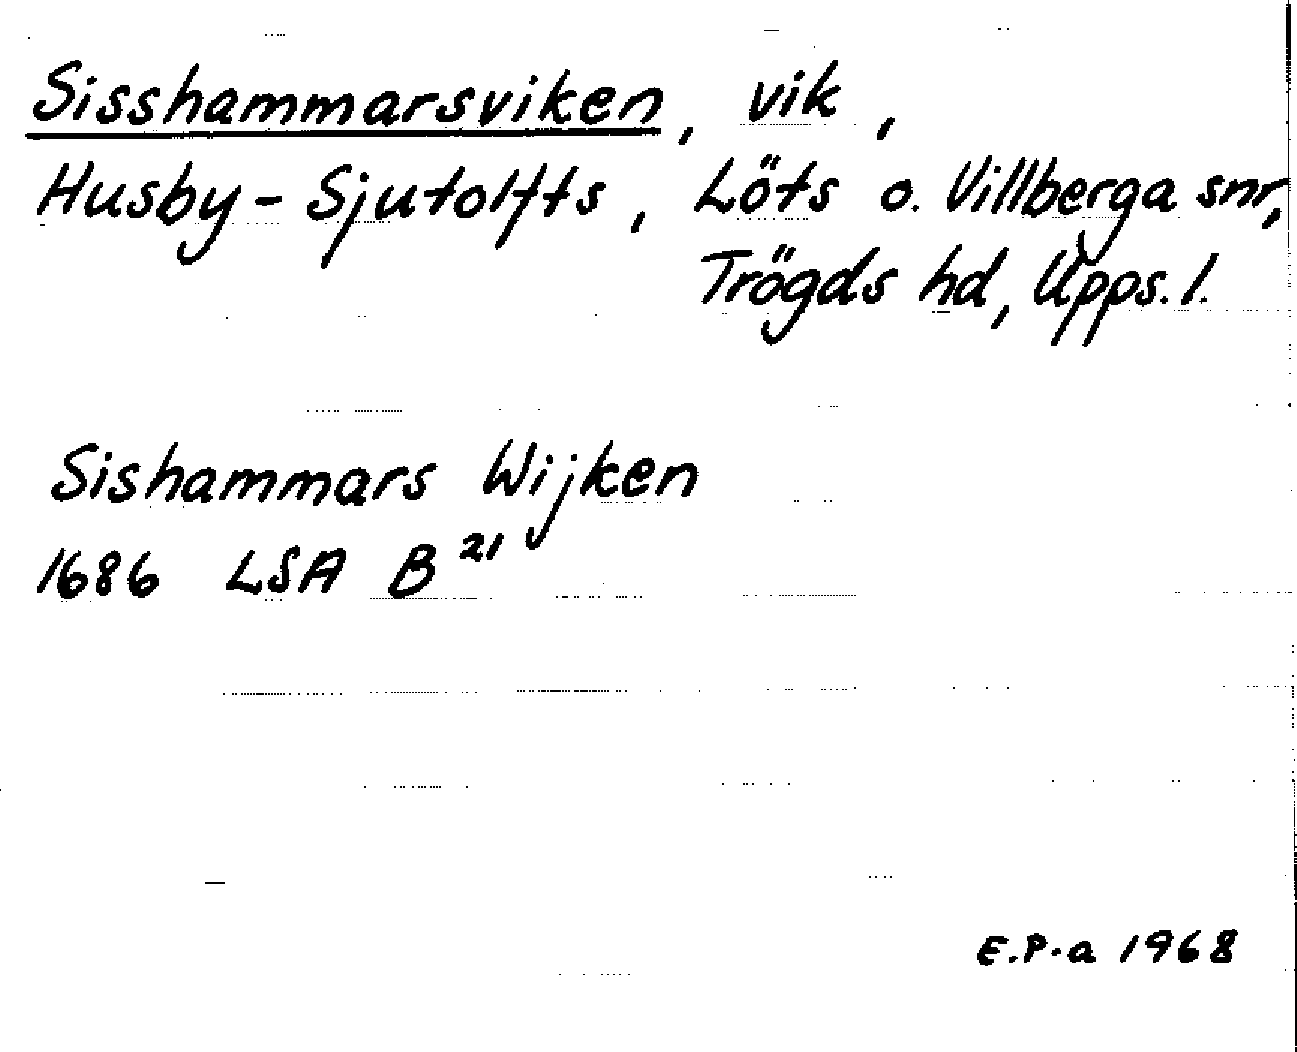 Sisshammarsviken, vik,
Husby-Sjutolfts, Löts o. Villberga snr,
Trögds hd, Upps. l.
Sishammars Wijken
1686 LSA B²¹
E.P-a 1968